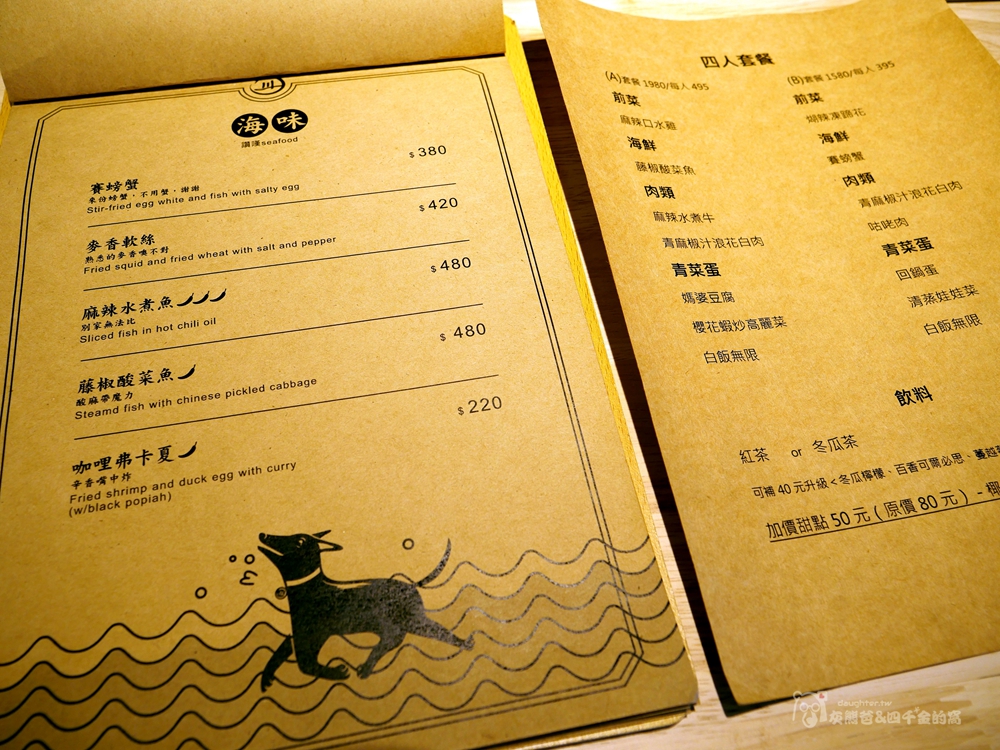 川
海味
讚漢seafood
賽螃蟹
$ 380
來份螃蟹，不用蟹，謝謝
Stir-fried egg white and fish with salty egg
麥香軟絲
$ 420
熟悉的麥香嘴不對
Fried squid and fried wheat with salt and pepper
麻辣水煮魚
$ 480
別家無法比
Sliced fish in hot chili oil
藤椒酸菜魚
$ 480
酸麻帶魔力
Steamd fish with chinese pickled cabbage
咖哩弗卡夏
$ 220
辛香嘴中炸
Fried shrimp and duck egg with curry
(w/black popiah)
四人套餐
(A)套餐 1980/每人 495
前菜
麻辣口水雞
海鮮
藤椒酸菜魚
肉類
麻辣水煮牛
青麻椒汁浪花白肉
青菜蛋
媽婆豆腐
櫻花蝦炒高麗菜
白飯無限
(B)套餐 1580/每人 395
前菜
煳辣凍蹄花
海鮮
賽螃蟹
肉類
青麻椒汁浪花白肉
咕咾肉
青菜蛋
回鍋蛋
清蒸娃娃菜
白飯無限
飲料
紅茶 or 冬瓜茶
可補 40 元升級<冬瓜檸檬、百香可爾必思、蔓越
加價甜點 50 元 ( 原價 80 元 ) - 椰
daughter.tw
灰熊爸&四千金的窩